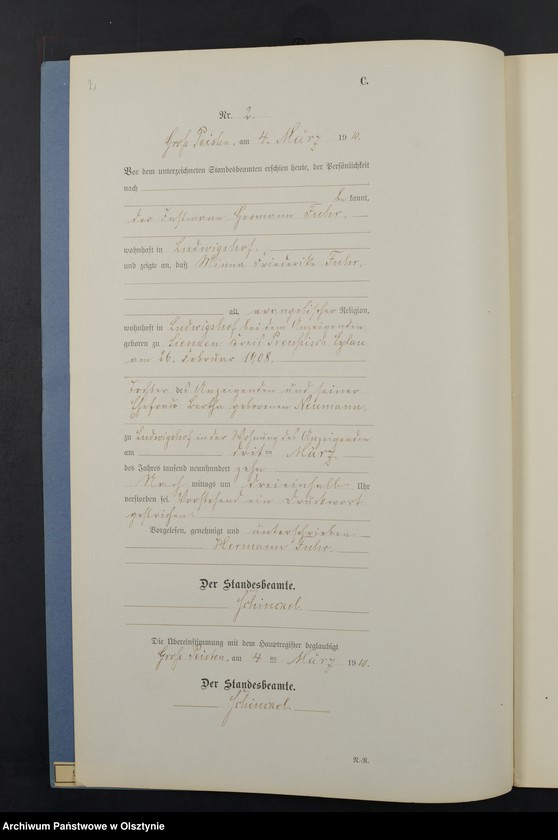 C.
Nr. 2.
Groß Peisten, am 4. März 1910.
Vor dem unterzeichneten Standesbeamten erschien heute, der Persönlichkeit
nach
bekannt,
der Instmann Hermann Fuhr.
wohnhaft in Ludwigshof.
und zeigte an, daß Minna Friederike Fuhr.
alt, evangelischer Religion,
wohnhaft in Ludwigshof bei dem Anzeigenden,
geboren zu Kreis Preußisch Eylau
am 26. Februar 1908.
Tochter des Anzeigenden und seiner
Ehefrau Bertha geborenen Neumann.
zu Ludwigshof in der Wohnung des Anzeigenden
am dritten März
des Jahres tausend neunhundert zehn
Nachmittags um dreieinhalb Uhr
verstorben sei. Vorstehend ein Druckwort
gestrichen.
Vorgelesen, genehmigt und unterschrieben
Hermann Fuhr.
Der Standesbeamte.
Die Übereinstimmung mit dem Hauptregister beglaubigt
Groß Peisten, am 4ten März 1910.
Der Standesbeamte.
N.-R.
Archiwum Państwowe w Olsztynie